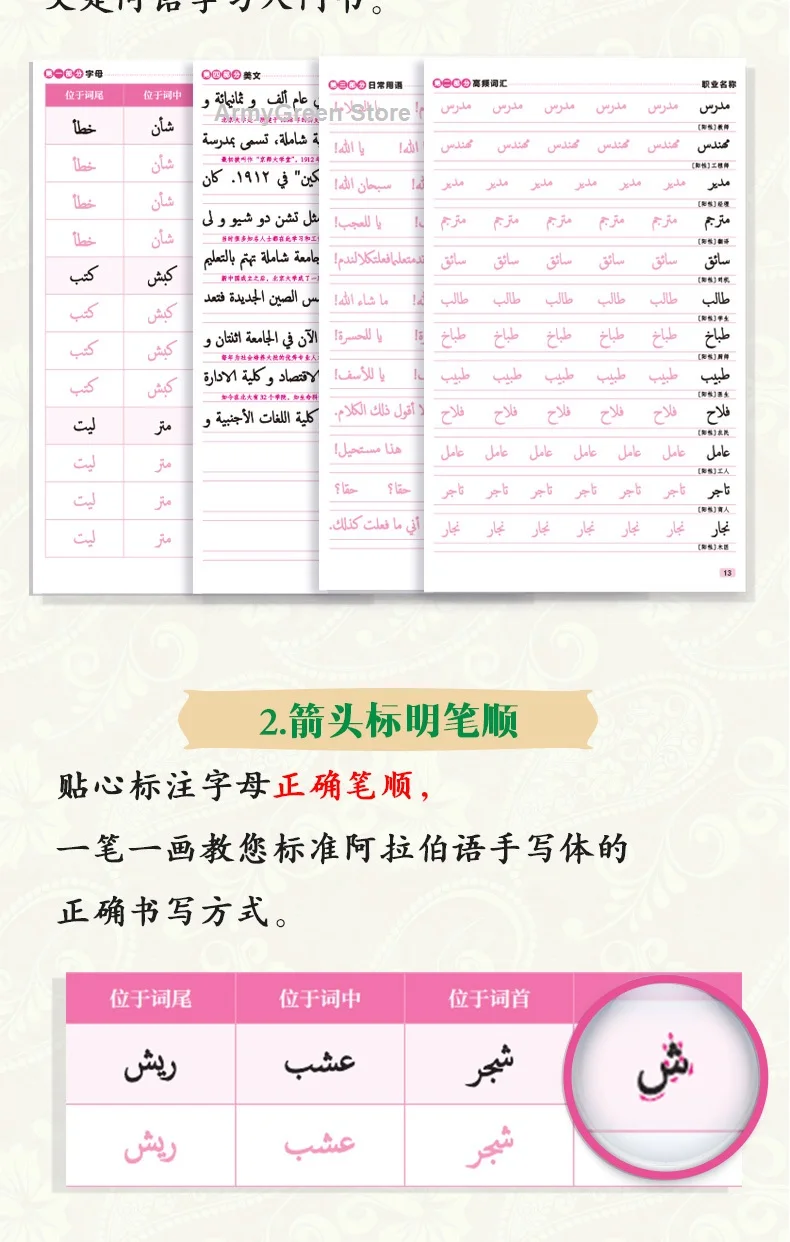 第一部分 字母
位于词尾 位于词中
خطأ شأن
خطأ شأن
خطأ شأن
خطأ شأن
كتب كبش
كتب كبش
كتب كبش
كتب كبش
ليت متر
ليت متر
ليت متر
ليت متر
第四部分 美文
عام ألف و ثمانمائة و
شاملة، تسمى بمدرسة
في ١٩١٢. كان
مثل تشن دو شيو و لى
جامعة شاملة تهتم بالتعليم
الصين الجديدة فتعد
الآن في الجامعة اثنتان و
الاقتصاد و كلية الادارة
كلية اللغات الأجنبية و
第三部分 日常用语
يا الله!
سبحان الله!
يا للعجب!
ما شاء الله!
يا للحسرة!
يا للأسف!
لا أقول ذلك الكلام.
هذا مستحيل!
حقا؟ حقا؟
أني ما فعلت كذلك.
ArmyGreen Store
第二部分 高频词汇 职业名称
مدرس مدرس مدرس مدرس مدرس مدرس
[阳性]教师
مهندس مهندس مهندس مهندس مهندس
[阳性]工程师
مدير مدير مدير مدير مدير مدير مدير
[阳性]经理
مترجم مترجم مترجم مترجم مترجم
[阳性]翻译
سائق سائق سائق سائق سائق
[阳性]司机
طالب طالب طالب طالب طالب
[阳性]学生
طباخ طباخ طباخ طباخ طباخ
[阳性]厨师
طبيب طبيب طبيب طبيب طبيب
[阳性]医生
فلاح فلاح فلاح فلاح فلاح
[阳性]农民
عامل عامل عامل عامل عامل عامل عامل
[阳性]工人
تاجر تاجر تاجر تاجر تاجر تاجر تاجر
[阳性]商人
نجار نجار نجار نجار نجار نجار نجار
[阳性]木匠
13
2.箭头标明笔顺
贴心标注字母正确笔顺，
一笔一画教您标准阿拉伯语手写体的
正确书写方式。
位于词尾 位于词中 位于词首
ريش عشب شجر ش
ريش عشب شجر